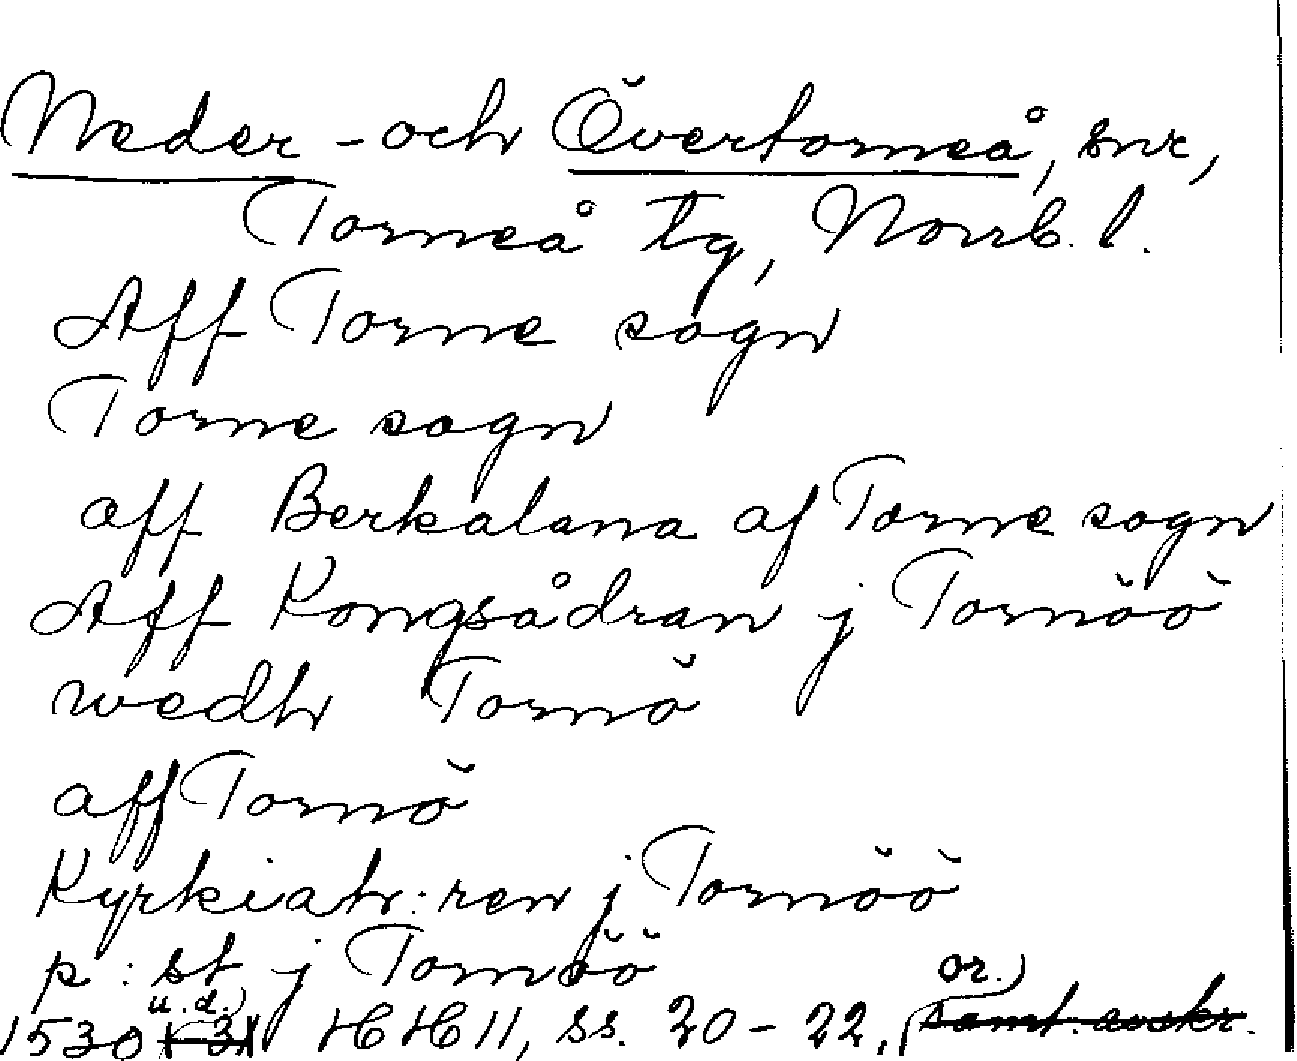 Neder- och Övertorneå, snr,
Torneå tg, Norrb. l.
Aff Torne sogn
Torne sogn
aff Berkalana af Torne sogn
Aff Kongsådran j Tornöö
wedh Tornö
aff Tornö
Kyrkiah:ren j Tornöö
p: st j Tornöö
1530 u.d. HH 11, ss. 20-22, or.